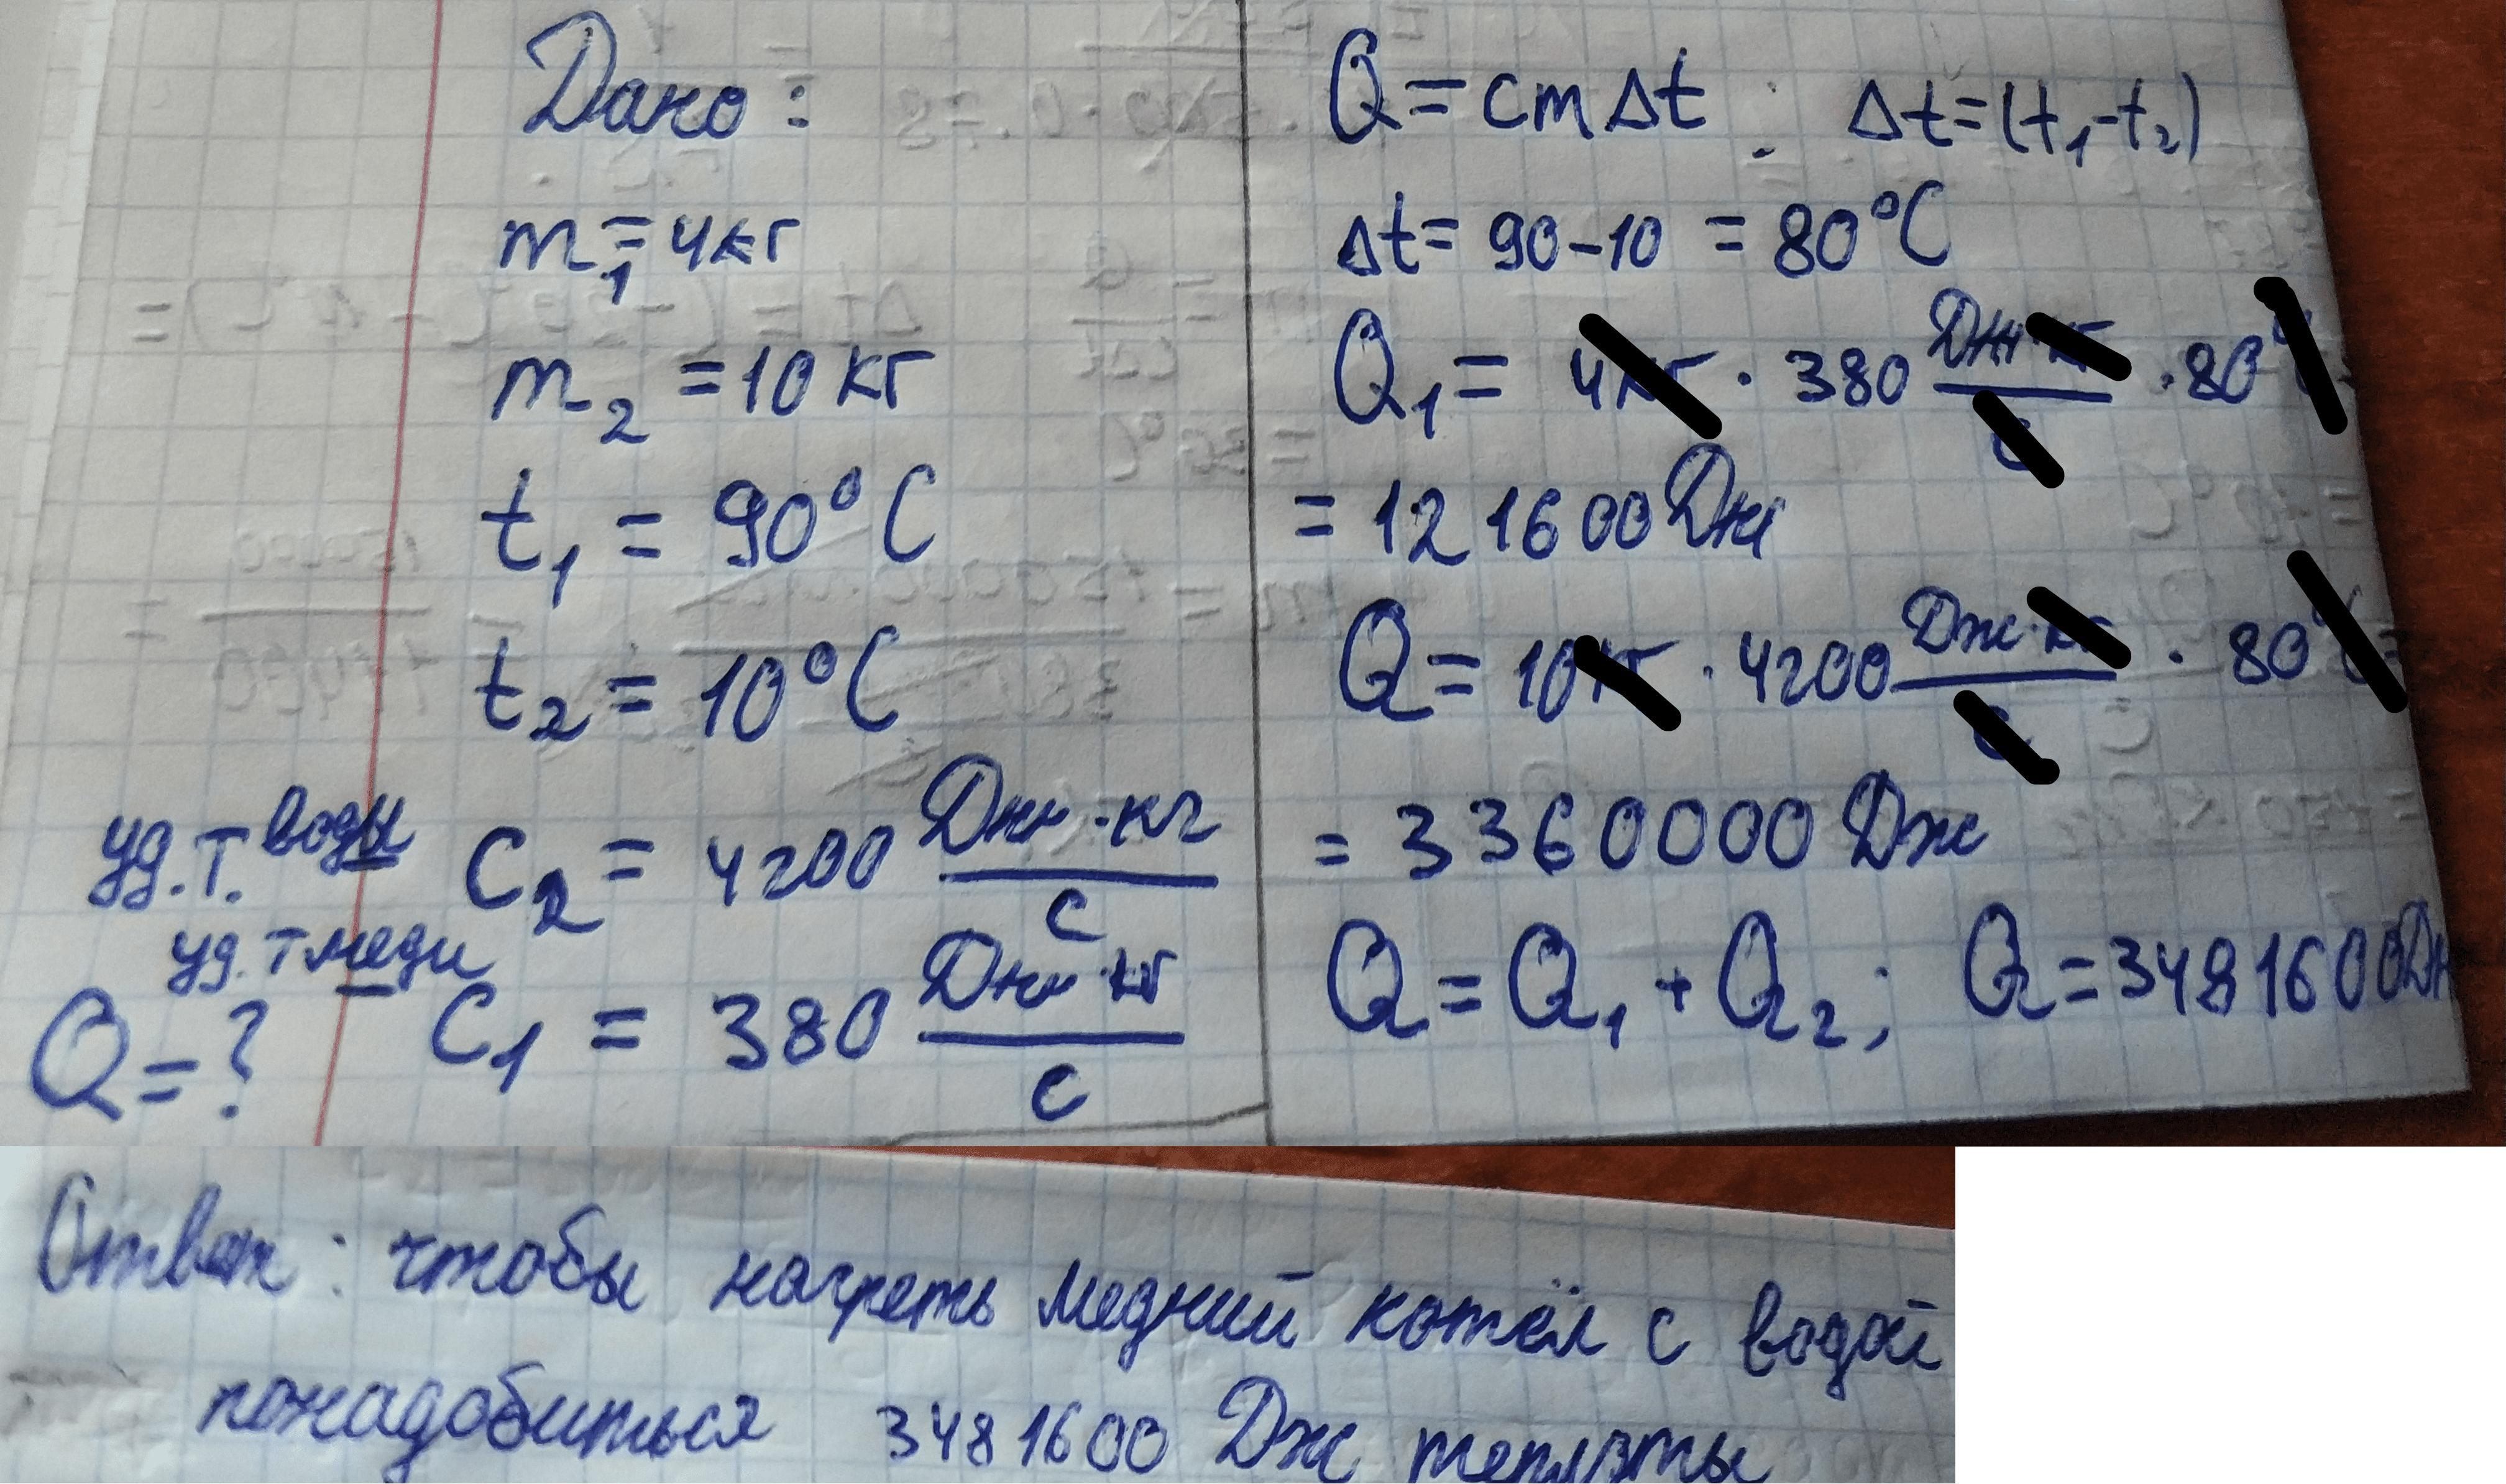 Дано:
m₁ = 4кг
m₂ = 10 кг
t₁ = 90°C
t₂ = 10°C
уд. т. воды c₂ = 4200 Дж·кг/c
уд. т меди c₁ = 380 Дж·кг/c
Q = ?
Q = cmΔt; Δt = (t₁-t₂)
Δt = 90-10 = 80°C
Q₁ = 4кг · 380 Дж·кг/c · 80°
= 121600 Дж
Q = 10кг · 4200 Дж·кг/c · 80°C =
= 3360000 Дж
Q = Q₁ + Q₂; Q = 3481600 Дж
Ответ: чтобы нагреть медний котёл с водой
понадобиться 3481600 Дж теплоты